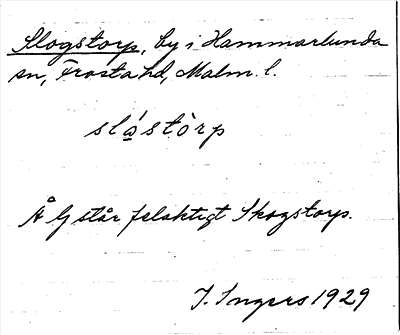 Slogstorp, by i Hammarlunda
sn, Frosta hd, Malm. l.
slåstòrp
Å Ly står felaktigt Skogstorp.
I. Ingers 1929